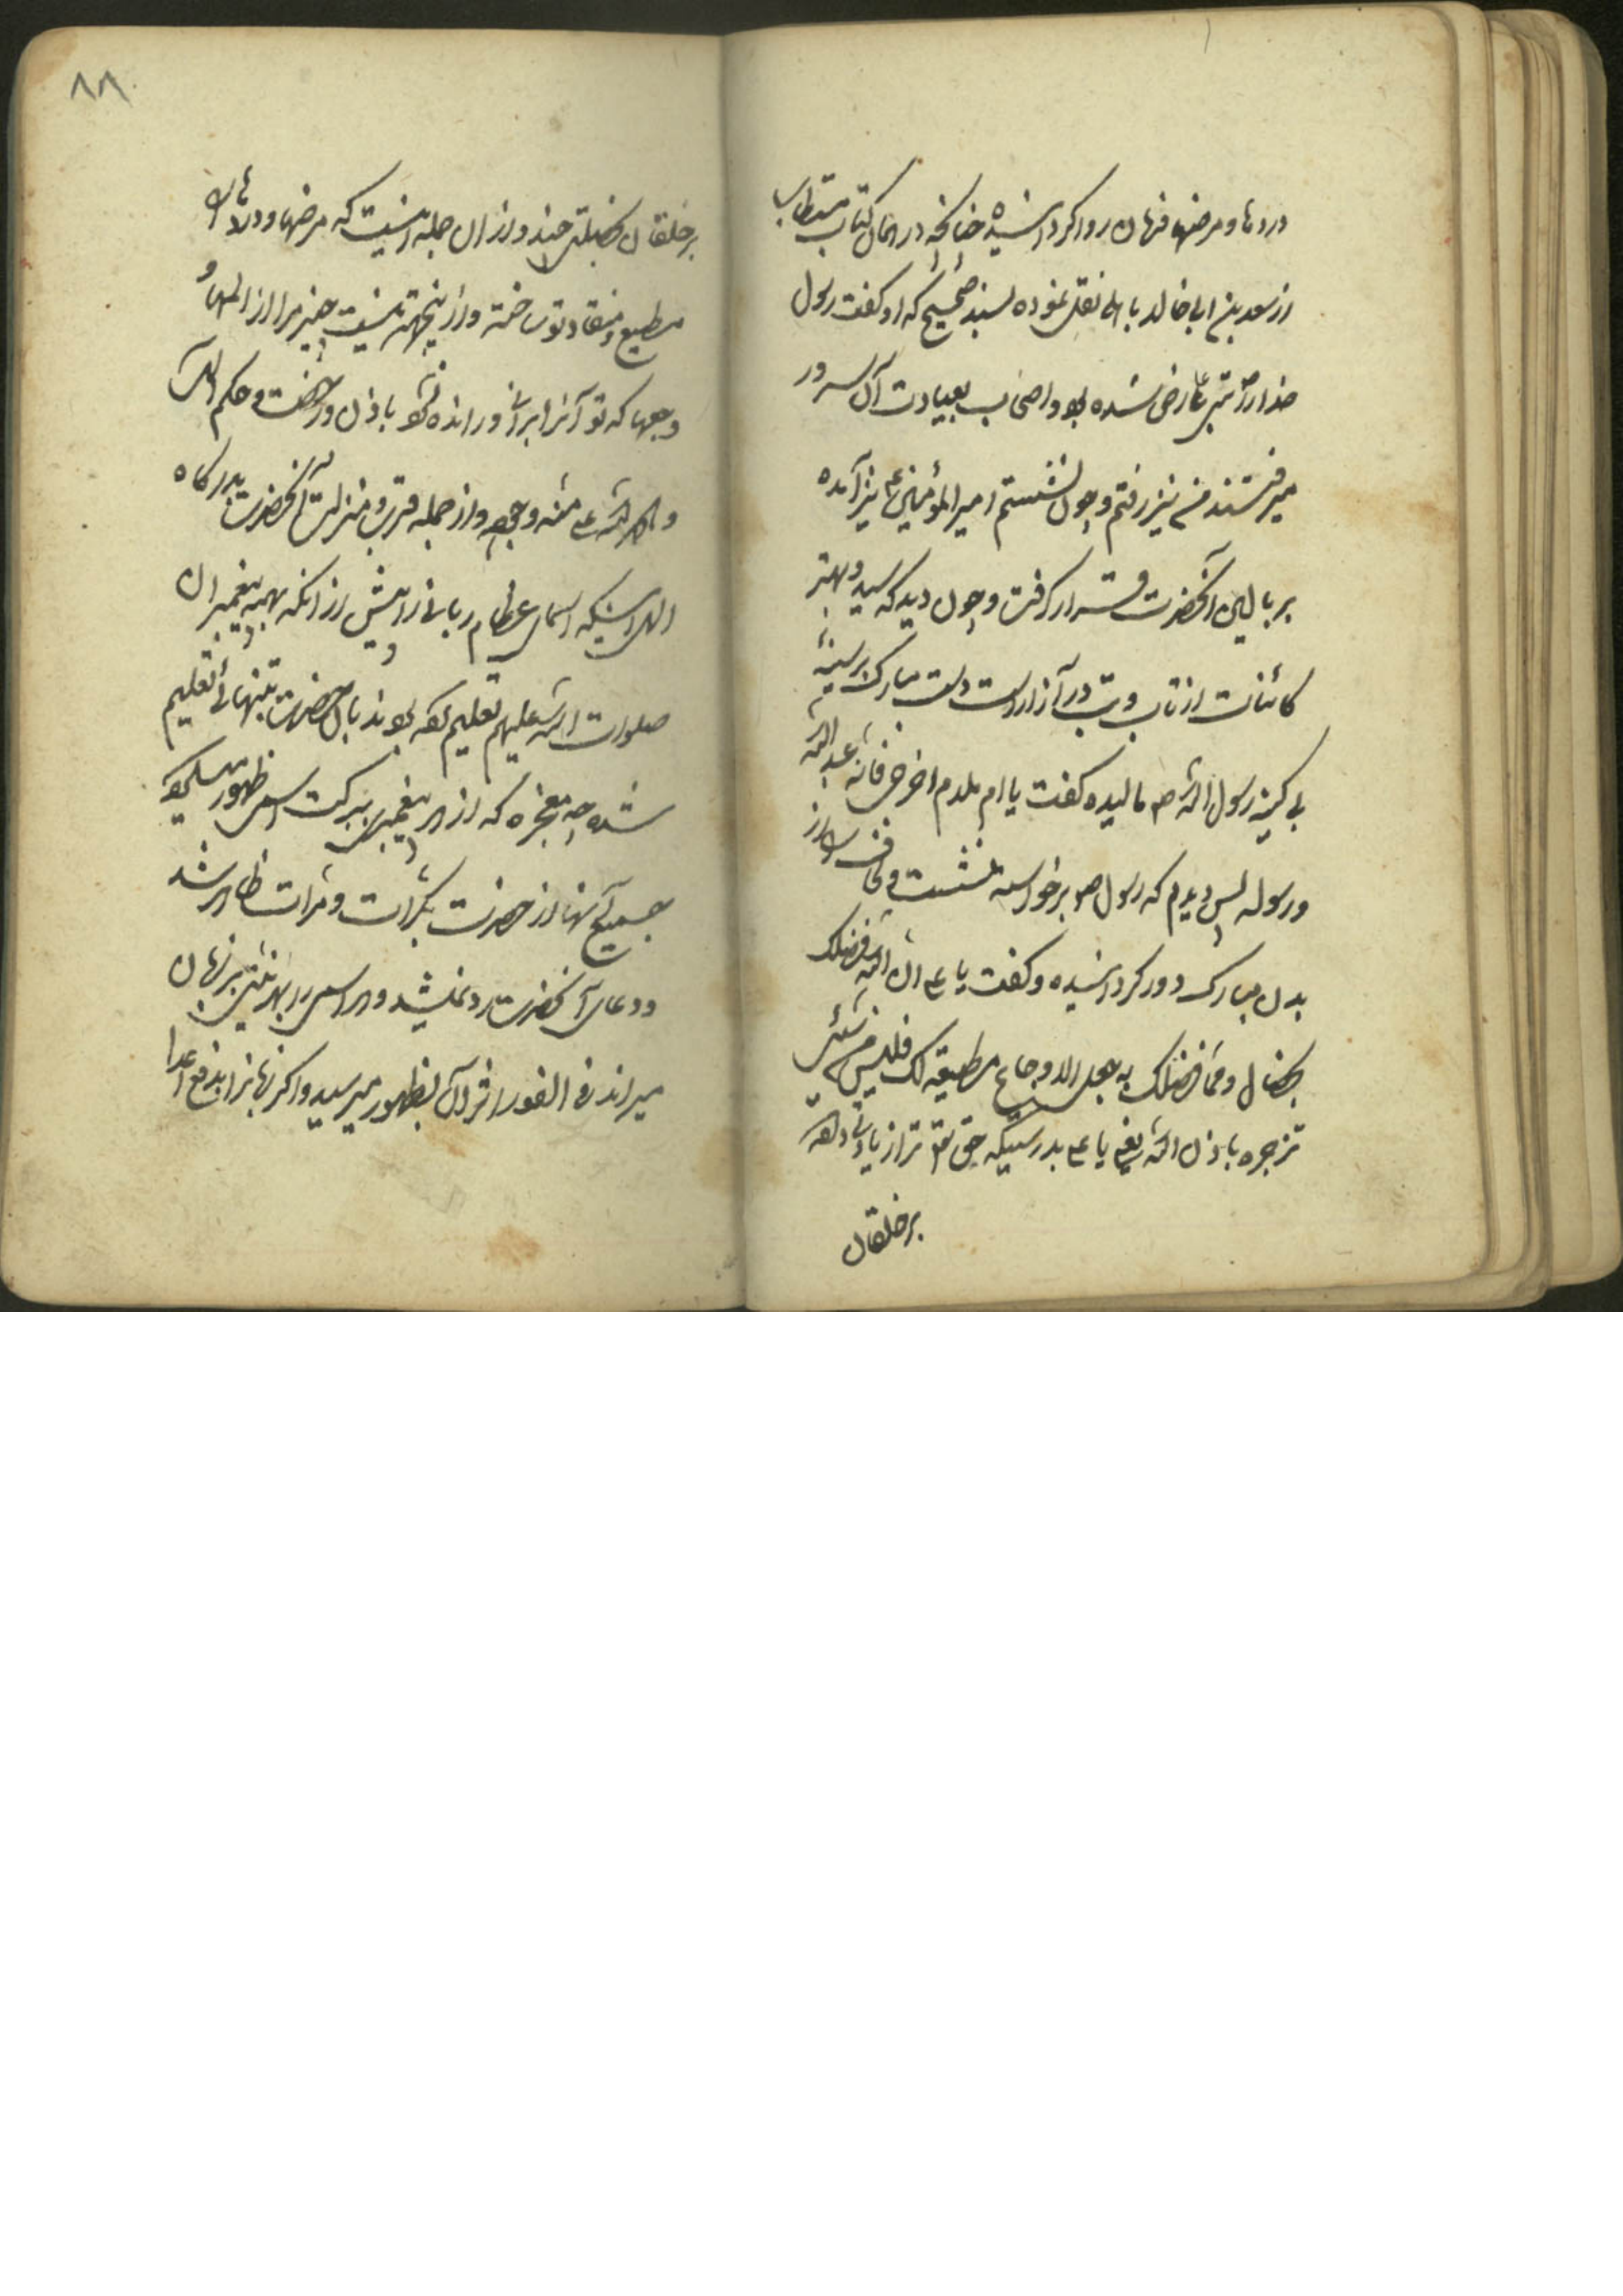 دردها و مرضها فرمان روا کردانیده چنانچه در همان کتاب مستطاب
از سعد بن ابی خالد باهلی نقل نموده بسند صحیح که او کفت رسول
خدا را تبی عارض شده بود و اصحاب بعیادت آن سرور
میرفتند من نیز رفتم و چون نشستم امیرالمؤمنین ع نیز آمده
بر بالین آنحضرت قرار کرفت و چون دید که سید و بهتر
کائنات از تاب و تب در آزار است دست مبارک بر سینهٔ
بی کینه رسول الله ص مالیده کفت یا ام ملدم اخرجی فانه عبد الله
و رسوله پس دیدم که رسول ص برخواسته نشست و لحاف را از
بدن مبارک دور کردانیده و کفت یا علی ان الله فضلک
بخصال و مما فضلک به جعل الاوجاع مطیعة لک فلیس من شئ
تزجره باذن الله یعنی یا علی بدرستیکه حق تعالی ترا زیادتی داده
برخلقان
۸۸
برخلقان بخصلتی چند و از آن جمله اینست که مرضها و دردها را
مطیع و منقاد تو ساخته و از ینجهة نیست چیز مرا از المها و
وجعها که تو آنرا برانی و رانده نشود باذن و رخصت و حکم الله
و از جمله قرب و منزلت آنحضرت بدرکاه
الهی اینکه اسمای عظام ربانی را پیش از آنکه بهمه پیغمبران
صلوات الله علیهم تعلیم کرده بودند بآن حضرت بتنهائی تعلیم
شده چه معجزه که از هر پیغمبری ببرکت اسمی ظهور میکرد
جمیع آنها از حضرت بکرات و مرات ظاهر شد
و دعای آنحضرت رد نمیشد و هر اسمی را بهر نیتی بر زبان
میراند فی الفور اثر آن بظهور میرسید و اکر زبانرا بدفع اعدا